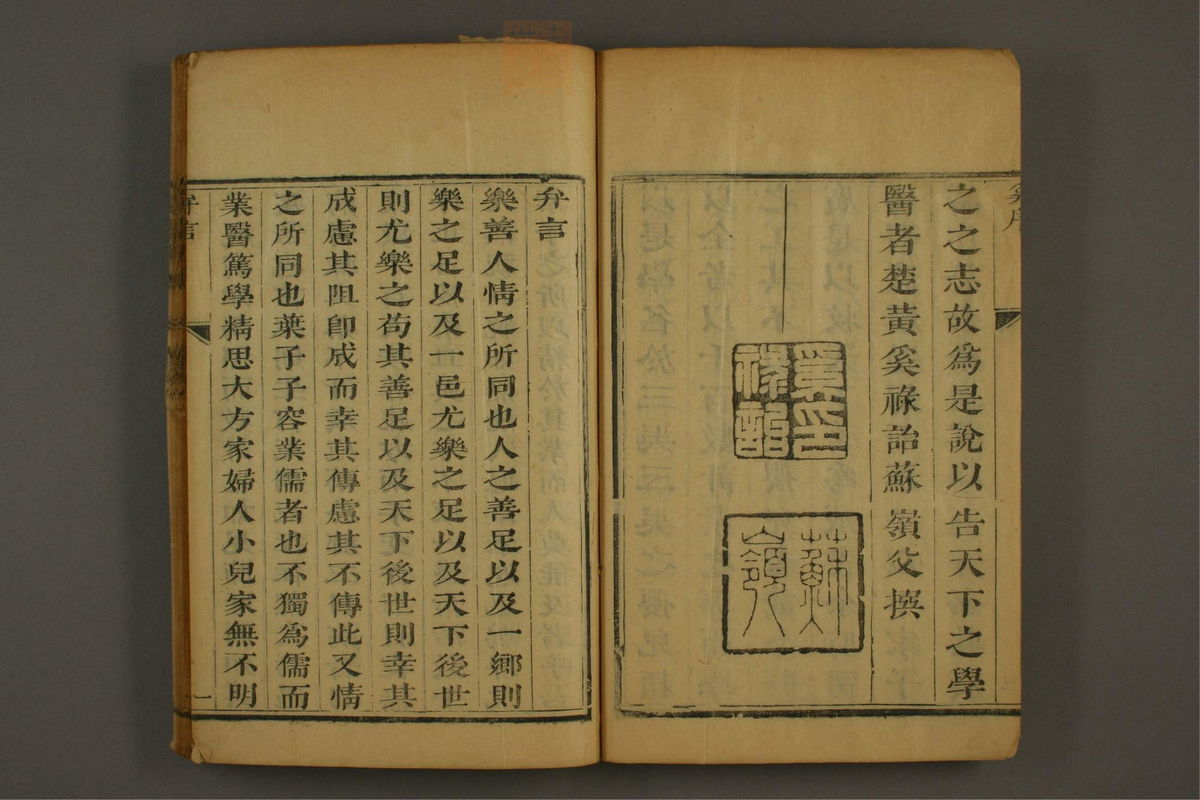 之之志故爲是說以告天下之學
醫者楚黃奚祿詒蘇嶺父撰
奚印
祿詒
蘇
嶺
弁言
樂善人情之所同也人之善足以及一鄉則
樂之足以及一邑尤樂之足以及天下後世
則尤樂之苟其善足以及天下後世則幸其
成慮其阻卽成而幸其傳慮其不傳此又情
之所同也葉子子容業儒者也不獨爲儒而
業醫篤學精思大方家婦人小兒家無不明
弁言
一